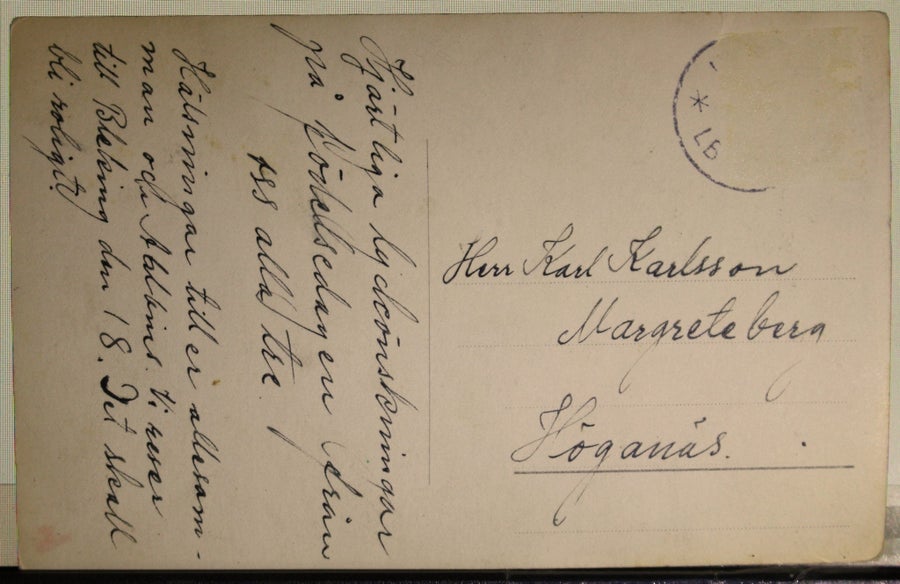 Hjärtliga lyckönskningar
på födelsedagen från
oss alla tre.
Hälsningar till er allesam-
man och Abbins. Vi reser
till Bleking den 18. Det skall
bli roligt!
* LB
Herr Karl Karlsson
Margreteberg
Höganäs.